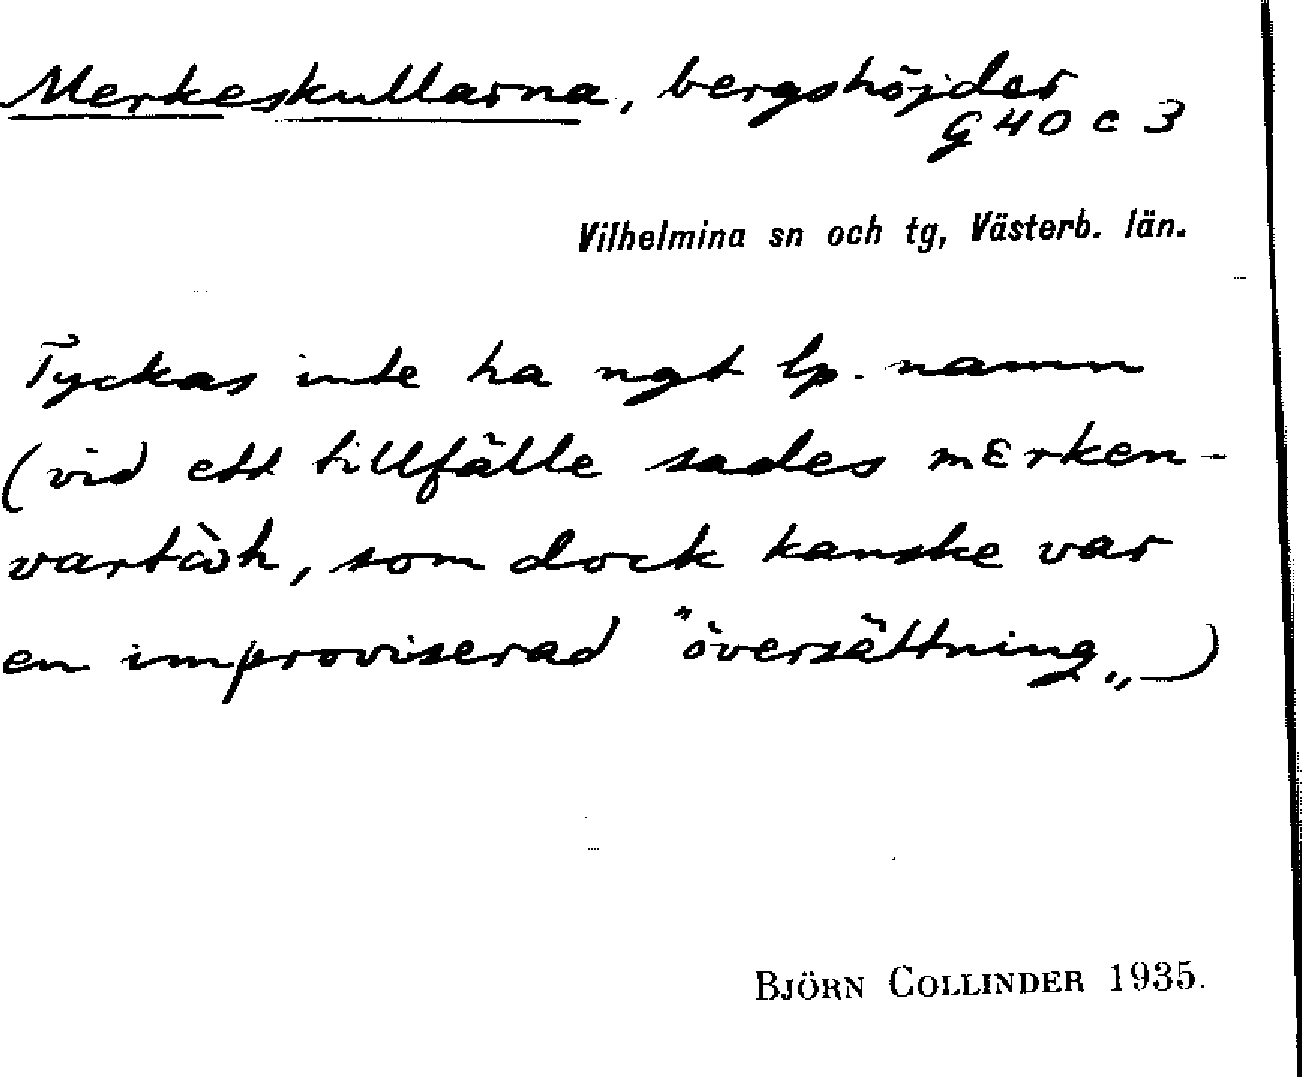 Merkeskullarna, bergshöjder
G 40 c 3
Vilhelmina sn och tg, Västerb. län.
Tyckas inte ha ngt lp. namn
(vid ett tillfälle sades mɛrken-
en improviserad "översättning„)
BJÖRN COLLINDER 1935.